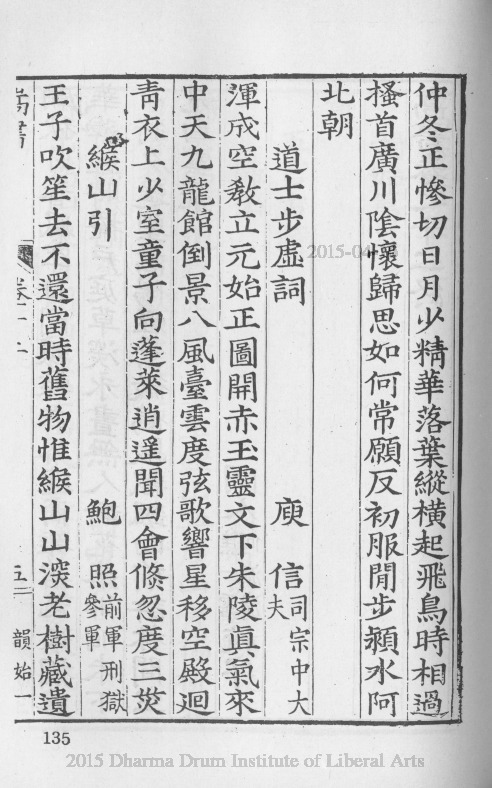 仲冬正慘切日月少精華落葉縱橫起飛鳥時相過
搔首廣川陰懷歸思如何常願反初服閒步潁水阿
北朝
道士步虛詞 庾信 司宗中大夫
渾成空教立元始正圖開赤玉靈文下朱陵眞氣來
中天九龍館倒景八風臺雲度弦歌響星移空殿迴
靑衣上少室童子向蓬萊逍遥聞四會倐忽度三災
緱山引 鮑照 前軍刑獄參軍
王子吹笙去不還當時舊物惟緱山山深老樹藏遺
嵩書 卷十二 五 韻始一
135
2015 Dharma Drum Institute of Liberal Arts